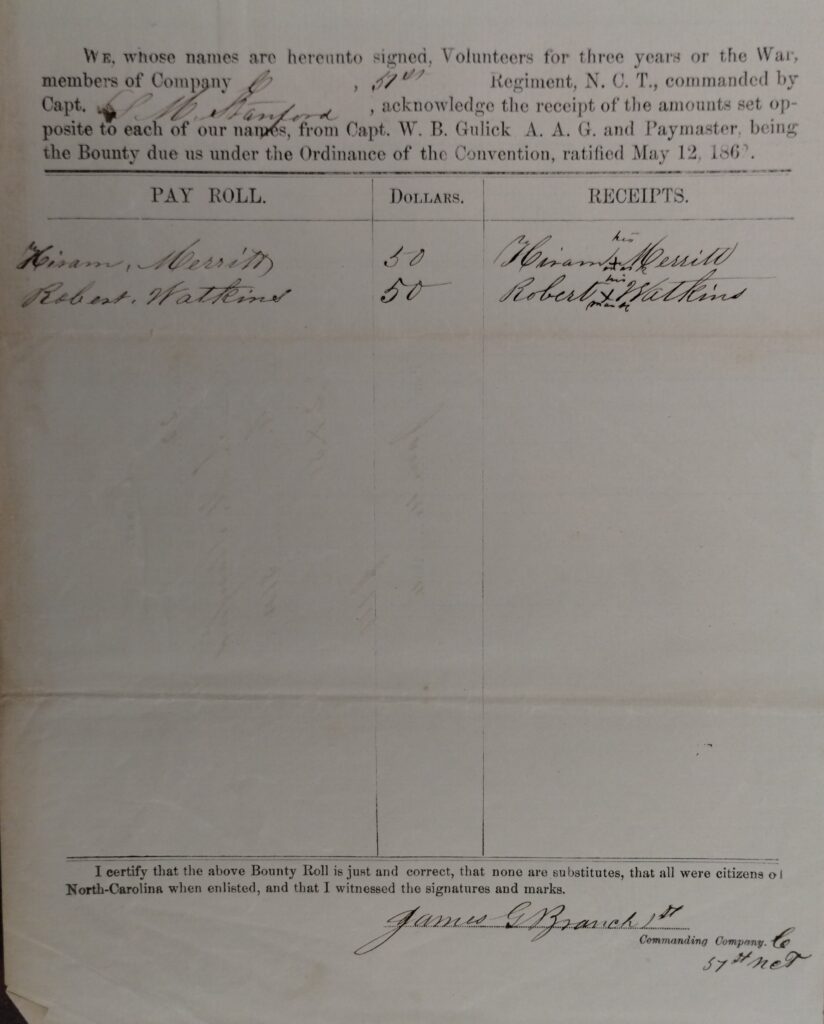 WE, whose names are hereunto signed, Volunteers for three years or the War,
members of Company C, 51st Regiment, N. C. T., commanded by
Capt. S M Stanford, acknowledge the receipt of the amounts set op-
posite to each of our names, from Capt. W. B. Gulick A. A. G. and Paymaster, being
the Bounty due us under the Ordinance of the Convention, ratified May 12, 186
PAY ROLL. DOLLARS. RECEIPTS.
his
Hiram, Merritt 50 Hiram X Merritt
mark
his
Robert. Watkins 50 Robert X Watkins
mark
I certify that the above Bounty Roll is just and correct, that none are substitutes, that all were citizens of
North-Carolina when enlisted, and that I witnessed the signatures and marks.
James G Branch 1st
Commanding Company. C
51st NCT